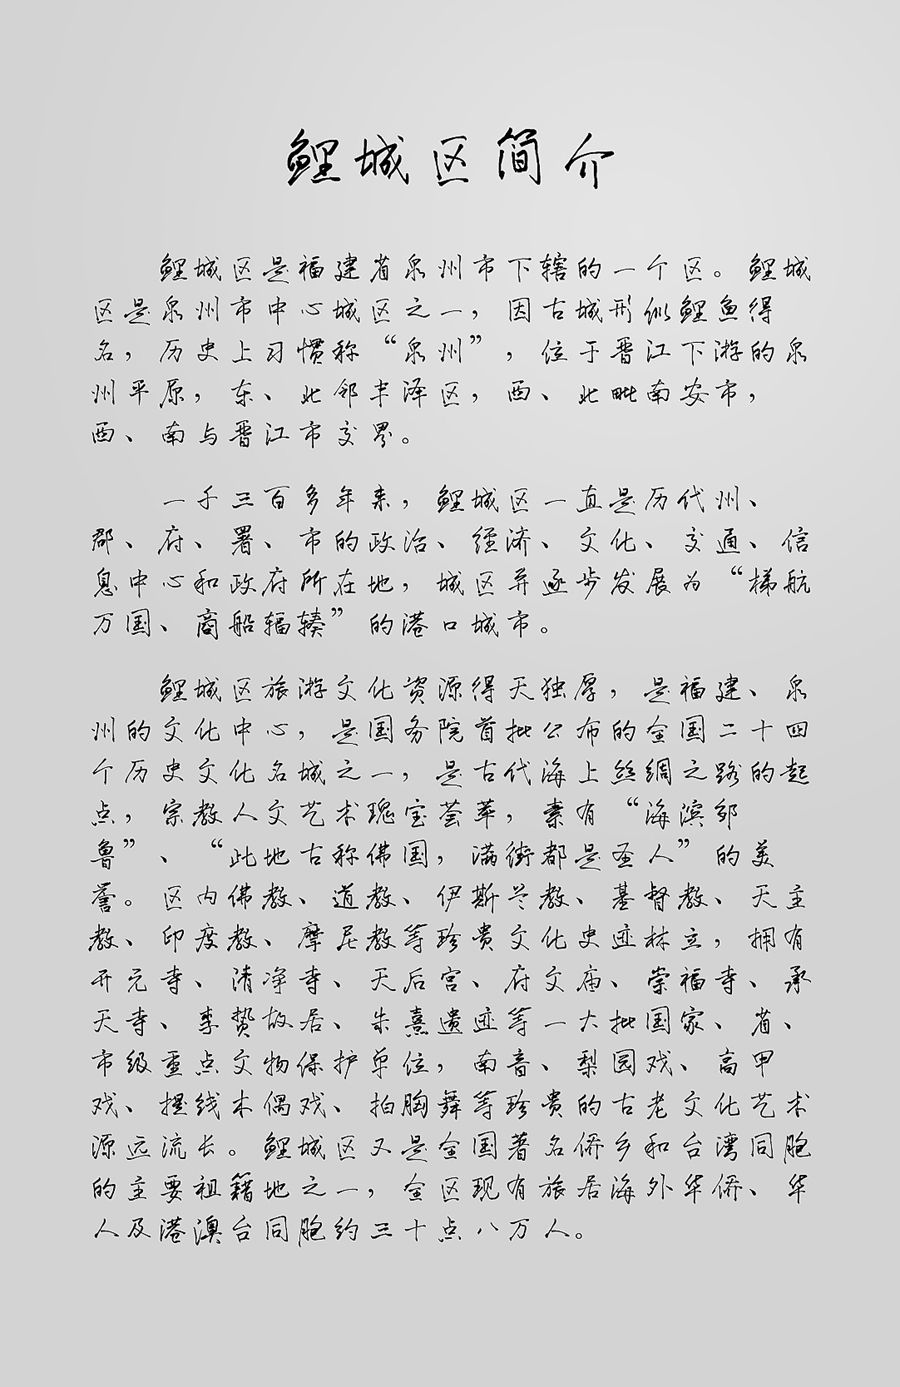 鲤城区简介
鲤城区是福建省泉州市下辖的一个区。鲤城
区是泉州市中心城区之一，因古城形似鲤鱼得
名，历史上习惯称“泉州”，位于晋江下游的泉
州平原，东、北邻丰泽区，西、北毗南安市，
西、南与晋江市交界。
一千三百多年来，鲤城区一直是历代州、
郡、府、署、市的政治、经济、文化、交通、信
息中心和政府所在地，城区并逐步发展为“梯航
万国、商船辐辏”的港口城市。
鲤城区旅游文化资源得天独厚，是福建、泉
州的文化中心，是国务院首批公布的全国二十四
个历史文化名城之一，是古代海上丝绸之路的起
点，宗教人文艺术瑰宝荟萃，素有“海滨邹
鲁”、“此地古称佛国，满街都是圣人”的美
誉。区内佛教、道教、伊斯兰教、基督教、天主
教、印度教、摩尼教等珍贵文化史迹林立，拥有
开元寺、清净寺、天后宫、府文庙、崇福寺、承
天寺、李贽故居、朱熹遗迹等一大批国家、省、
市级重点文物保护单位，南音、梨园戏、高甲
戏、提线木偶戏、拍胸舞等珍贵的古老文化艺术
源远流长。鲤城区又是全国著名侨乡和台湾同胞
的主要祖籍地之一，全区现有旅居海外华侨、华
人及港澳台同胞约三十点八万人。